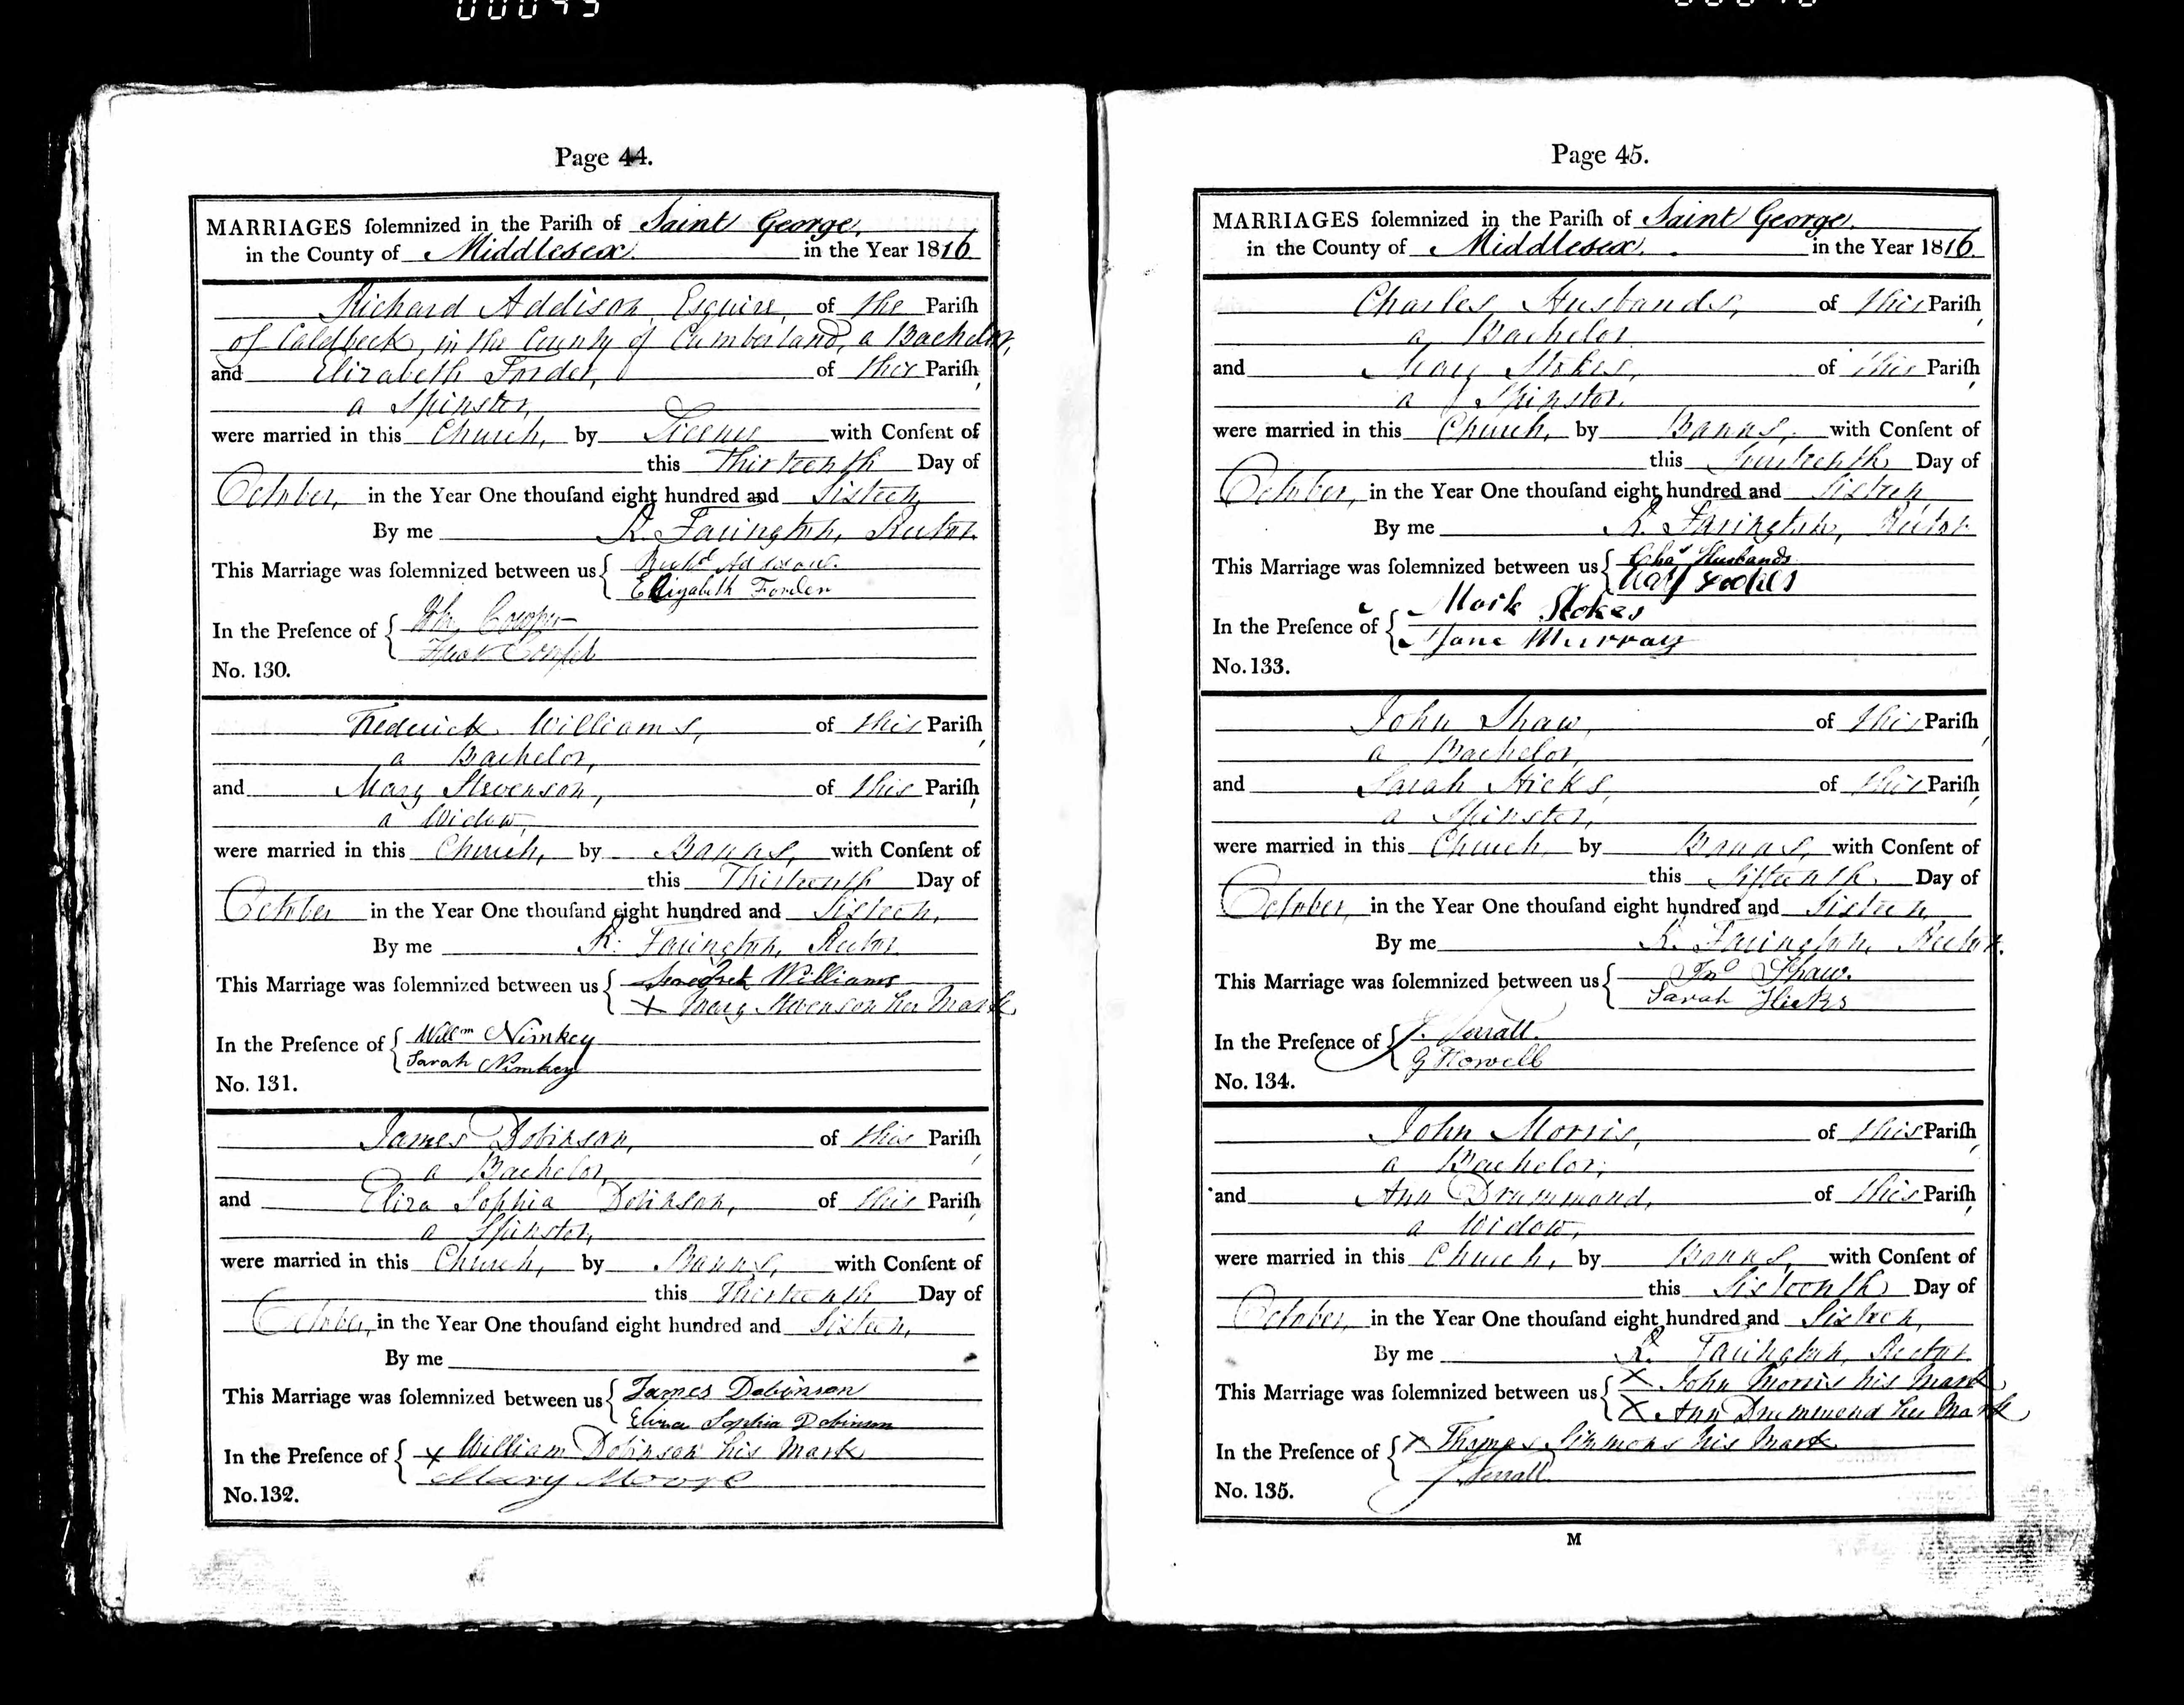 00045
Page 44.
MARRIAGES ſolemnized in the Pariſh of Saint George,
in the County of Middlesex. in the Year 1816
Richard Addison, Esquire, of the Pariſh
of Caldbeck, in the County of Cumberland, a Bachelor,
and Elizabeth Forder, of this Pariſh,
a Spinster,
were married in this Church, by Licence with Conſent of
this Thirteenth Day of
October, in the Year One thouſand eight hundred and Sixteen
By me R. Farington, Rector.
This Marriage was ſolemnized between us Richd Addison.
Elizabeth Forder
In the Preſence of
No. 130.
Frederick Williams, of this Pariſh,
a Bachelor,
and Mary Stevenson, of this Pariſh,
a Widow,
were married in this Church, by Banns, with Conſent of
this Thirteenth Day of
October in the Year One thouſand eight hundred and Sixteen,
By me R. Farington, Rector.
This Marriage was ſolemnized between us Williams
X Mary Stevenson her Mark
In the Preſence of Willm Nimkey
Sarah Nimkey
No. 131.
James Dobinson, of this Pariſh,
a Bachelor,
and Eliza Sophia Dobinson, of this Pariſh,
a Spinster,
were married in this Church, by Banns, with Conſent of
this Thirteenth Day of
October, in the Year One thouſand eight hundred and Sixteen,
By me
This Marriage was ſolemnized between us James Dobinson
Eliza Sophia Dobinson
In the Preſence of X William Dobinson his Mark
Mary Moore
No. 132.
Page 45.
MARRIAGES ſolemnized in the Pariſh of Saint George.
in the County of Middlesex. in the Year 1816.
Charles Husbands, of this Pariſh,
a Bachelor
and Mary Stokes, of this Pariſh,
a Spinster.
were married in this Church, by Banns, with Conſent of
this Fourteenth Day of
October, in the Year One thouſand eight hundred and Sixteen
By me R. Farington, Rector
This Marriage was ſolemnized between us Chas Husbands
In the Preſence of Mark Stokes
Jane Murray
No. 133.
John Shaw, of this Pariſh,
a Bachelor,
and Sarah Hicks, of this Pariſh,
a Spinster,
were married in this Church by Banns, with Conſent of
this Fifteenth Day of
October, in the Year One thouſand eight hundred and Sixteen
By me R. Farington, Rector.
This Marriage was ſolemnized between us Jno Shaw.
Sarah Hicks
In the Preſence of
G Howell
No. 134.
John Morris, of this Pariſh,
a Bachelor,
and Ann Drummond, of this Pariſh,
a Widow,
were married in this Church, by Banns, with Conſent of
this Sixteenth Day of
October, in the Year One thouſand eight hundred and Sixteen,
By me R. Farington, Rector.
This Marriage was ſolemnized between us X John Morris his Mark
X Ann Drummond her Mark
In the Preſence of X Thomas Simmons his Mark
No. 135.
M